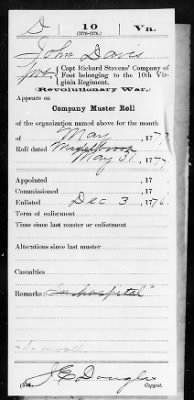 D | 10 | Va.
(1776-1778.)
John Davis
Pvt., Capt Richard Stevens' Company of
Foot belonging to the 10th Vir-
ginia Regiment.
(Revolutionary War.)
Appears on
Company Muster Roll
of the organization named above for the month
of May, 1777.
Roll dated Middlebrook
May 31, 1777.
Appointed , 17
Commissioned , 17
Enlisted Dec 3, 1776.
Term of enlistment
Time since last muster or enlistment
Alterations since last muster
Casualties
Remarks: "In hospital"
J E Douglas
Copyist.